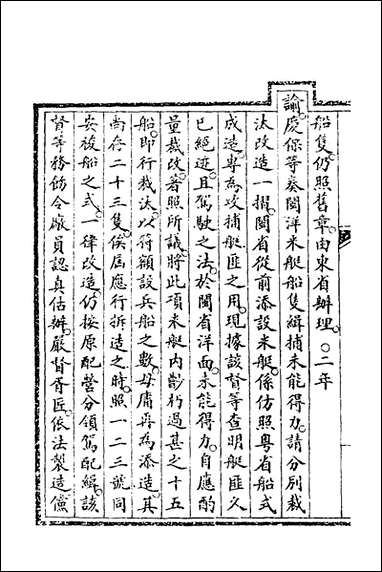 船隻仍照舊章由東省辦理○二年
諭慶保等奏閩洋米艇船隻緝捕未能得力請分別裁
汰改造一摺閩省從前添設米艇係仿照粵省船式
成造專為攻捕艇匪之用現據該督等查明艇匪久
已絕迹且駕駛之法於閩省洋面未能得力自應酌
量裁改著照所議將此項米艇內𣦸朽過甚之十五
船即行裁汰以符額設兵船之數毋庸再為添造其
尚存二十三隻俟屆應行拆造之時照一二三號同
安梭船之式一律改造仍按原配營分領駕配緝該
督等務飭令廠員認真估辦嚴督胥匠依法製造儻